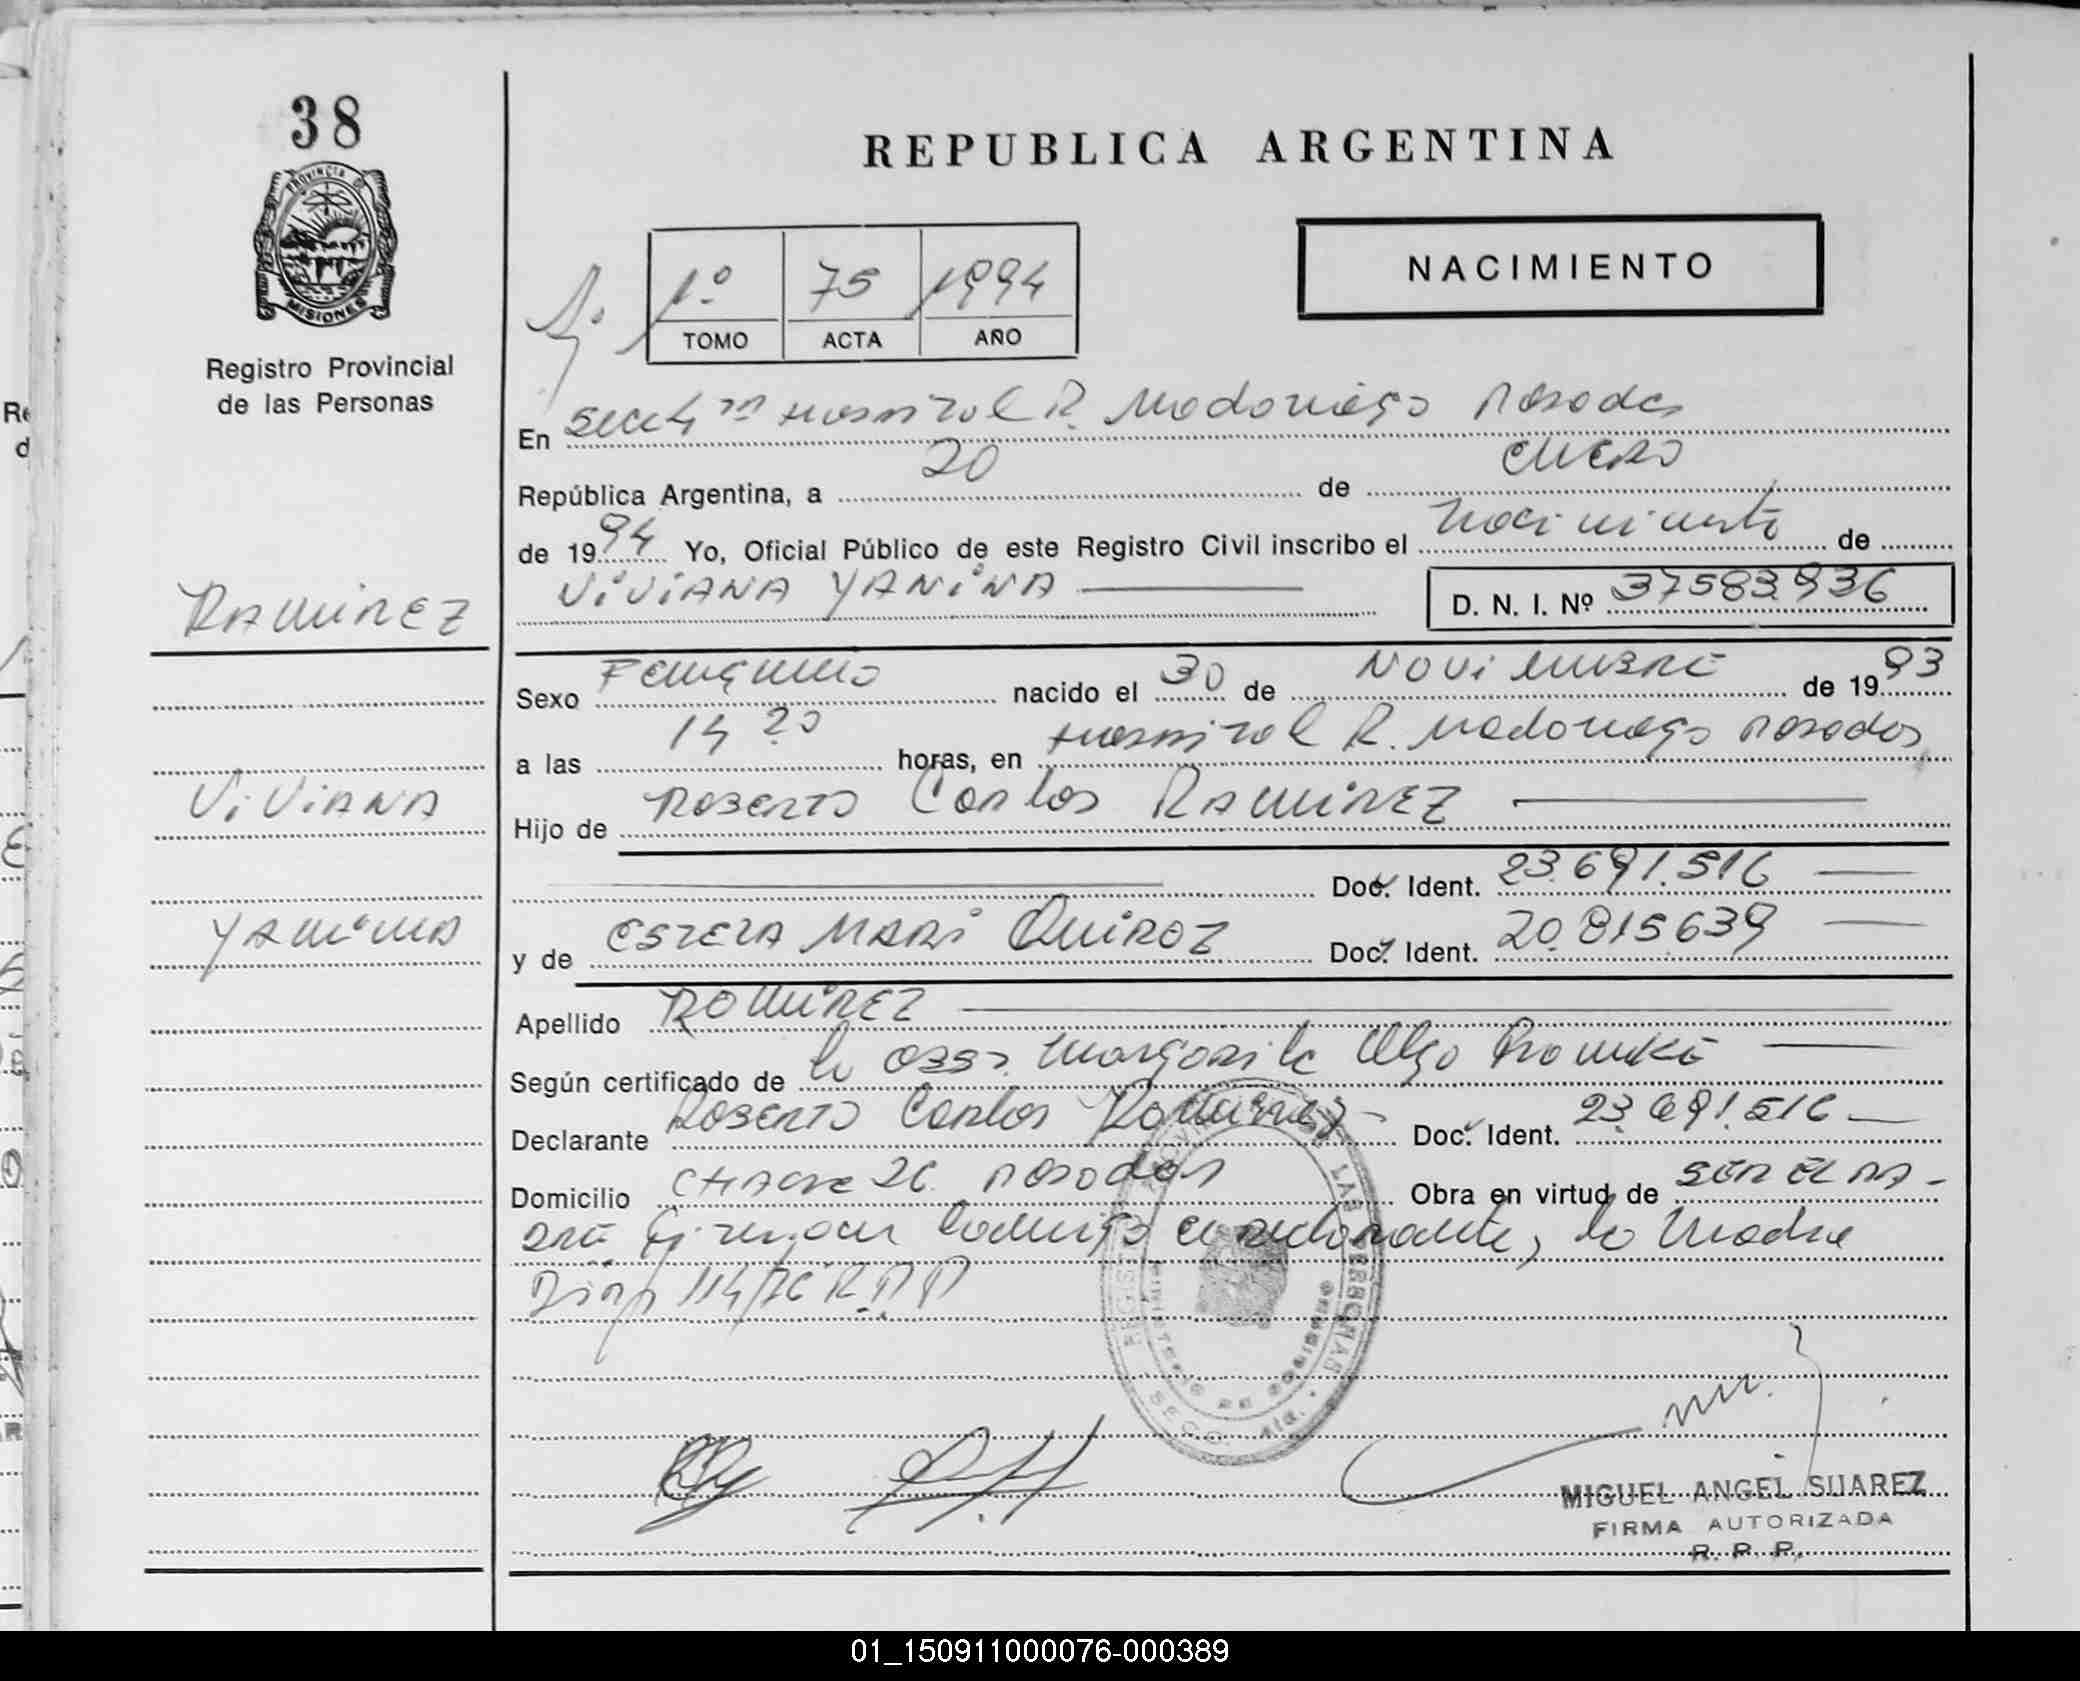 38
REPUBLICA ARGENTINA
PROVINCIA DE
MISIONES
Registro Provincial
de las Personas
1º 75 1994
TOMO ACTA AÑO
NACIMIENTO
En Secc 4ta Hospital R. Madariaga Posadas
República Argentina, a 20 de enero
de 1994 Yo, Oficial Público de este Registro Civil inscribo el nacimiento de
VIVIANA YANINA D. N. I. Nº 37583.936
RAMIREZ
VIVIANA
YANINA
Sexo Femenino nacido el 30 de NOVIEMBRE de 1993
a las 14 20 horas, en Hospital R. Madariaga Posadas
Hijo de Roberto Carlos RAMIREZ
Doc. Ident. 23.691.516
y de ESTELA MARI QUIROZ Doc. Ident. 20.815.639
Apellido RAMIREZ
Según certificado de la Obst. Margarita Olga
Declarante Roberto Carlos Ramirez Doc. Ident. 23.691.516
Domicilio CHACRA 26 Posadas Obra en virtud de SER EL PA-
DRE firman conmigo el declarante, la Madre
Disp 114/76 R.P.P
REGISTRO PROV. DE LAS PERSONAS
MINISTERIO DE GOBIERNO
SECC. 4ta.
MIGUEL ANGEL SUAREZ
FIRMA AUTORIZADA
R. P. P.
01_150911000076-000389